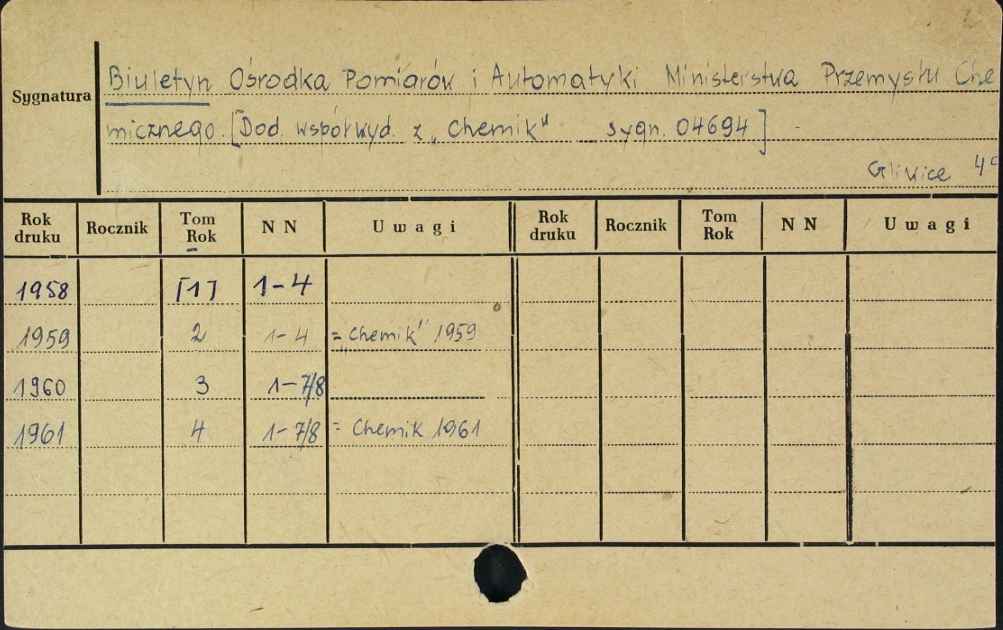 Sygnatura
Biuletyn Ośrodka Pomiarów i Automatyki Ministerstwa Przemysłu Che
micznego. [Dod. współwyd. z „Chemik" sygn. 04694]
Gliwice 4°
Rok druku Rocznik Tom Rok N N Uwagi Rok druku Rocznik Tom Rok N N Uwagi
1958 [1] 1-4
1959 2 1-4 = „Chemik" 1959
1960 3 1-7/8
1961 4 1-7/8 = Chemik 1961